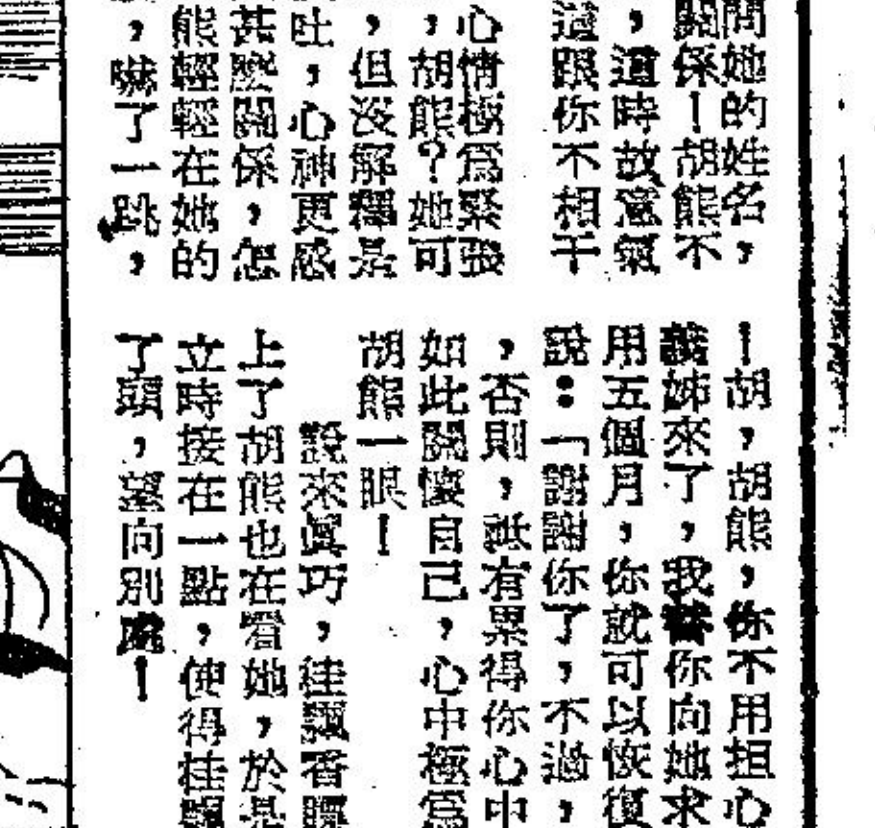 問她的姓名，
關係！胡熊不
，這時故意氣
道跟你不相干
心情極爲緊張
，胡熊？她可
，但沒解釋是
吐，心神更感
甚麼關係，怎
熊輕輕在她的
，嚇了一跳，
！胡，胡熊，你不用担心
義姊來了，我替你向她求
用五個月，你就可以恢復
說：「謝謝你了，不過，
，否則，祇有累得你心中
如此關懷自己，心中極爲
胡熊一眼！
說來眞巧，桂飄香
上了胡熊也在看她，於是
立時接在一點，使得桂飄
了頭，望向別處！